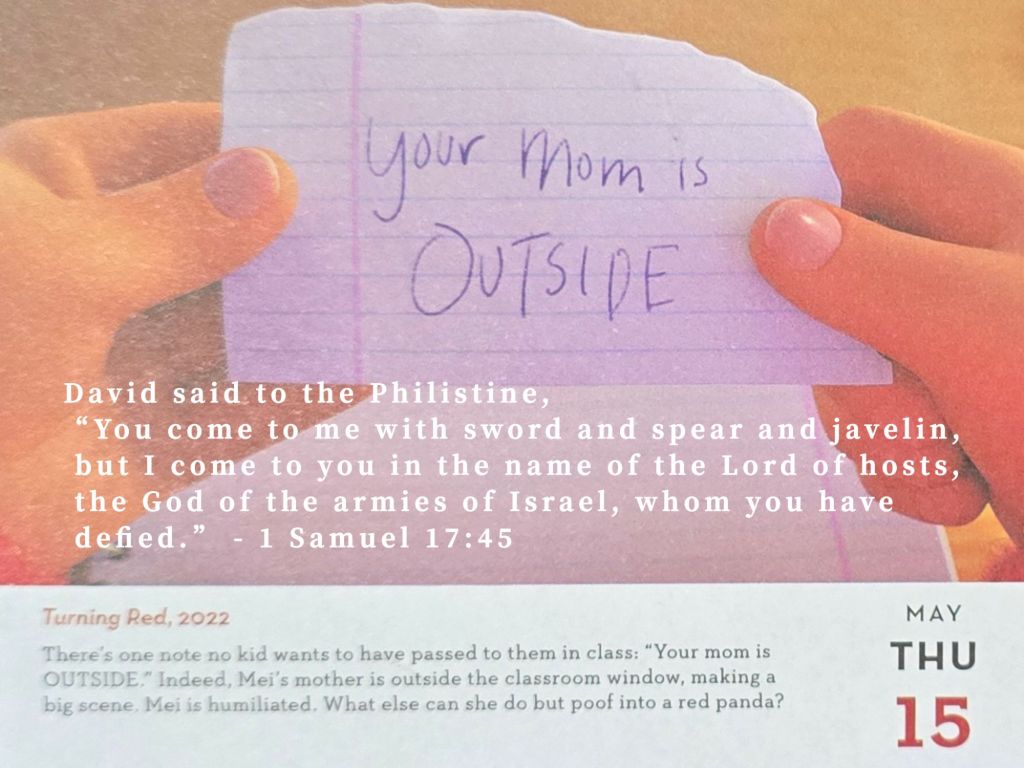 your Mom is
OUTSIDE
David said to the Philistine,
“You come to me with sword and spear and javelin,
but I come to you in the name of the Lord of hosts,
the God of the armies of Israel, whom you have
defied.” - 1 Samuel 17:45
Turning Red, 2022
There’s one note no kid wants to have passed to them in class: “Your mom is
OUTSIDE.” Indeed, Mei’s mother is outside the classroom window, making a
big scene. Mei is humiliated. What else can she do but poof into a red panda?
MAY
THU
15